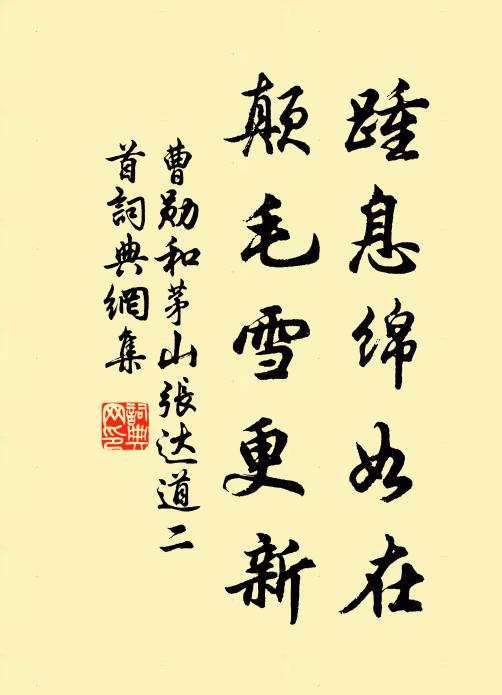 踵息绵如在
颠毛雪更新
曹勋和茅山張达道二
首詞典網集
詞典
网印